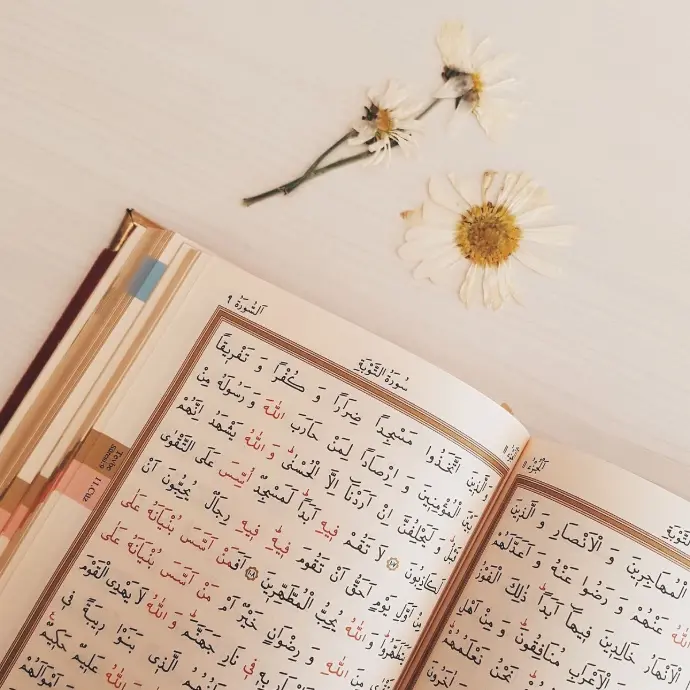 اَلسُّورَةُ ٩
سُورَةُ التَّوْبَةِ
وَالَّذِينَ اتَّخَذُوا مَسْجِدًا ضِرَارًا وَ كُفْرًا وَ تَفْرِيقًا
بَيْنَ الْمُؤْمِنِينَ وَ اِرْصَادًا لِمَنْ حَارَبَ اللّٰهَ وَ رَسُولَهُ مِنْ
قَبْلُ وَ لَيَحْلِفُنَّ اِنْ اَرَدْنَا اِلَّا الْحُسْنٰى وَ اللّٰهُ يَشْهَدُ اِنَّهُمْ
لَكَاذِبُونَ ١٠٧ لَا تَقُمْ فِيهِ اَبَدًا لَمَسْجِدٌ اُسِّسَ عَلَى التَّقْوٰى
مِنْ اَوَّلِ يَوْمٍ اَحَقُّ اَنْ تَقُومَ فِيهِ فِيهِ رِجَالٌ يُحِبُّونَ اَنْ
يَتَطَهَّرُوا وَ اللّٰهُ يُحِبُّ الْمُطَّهِّرِينَ ١٠٨ اَفَمَنْ اَسَّسَ بُنْيَانَهُ عَلٰى
مِنَ اللّٰهِ وَ رِضْوَانٍ خَيْرٌ اَمْ مَنْ اَسَّسَ بُنْيَانَهُ عَلٰى
فِي نَارِ جَهَنَّمَ وَ اللّٰهُ لَا يَهْدِي الْقَوْمَ
الَّذِي بَنَوْا رِيبَةً فِي
وَ اللّٰهُ عَلِيمٌ حَكِيمٌ
اَمْوَالَهُمْ
اَلْجُزْءُ ١١
الْمُهَاجِرِينَ وَ الْاَنْصَارِ وَ الَّذِينَ
اللّٰهُ عَنْهُمْ وَ رَضُوا عَنْهُ وَ اَعَدَّ لَهُمْ
الْاَنْهَارُ خَالِدِينَ فِيهَا اَبَدًا ذٰلِكَ الْفَوْزُ
الْاَعْرَابِ مُنَافِقُونَ وَ مِنْ اَهْلِ
نَحْنُ نَعْلَمُهُمْ
وَ اٰخَرُونَ
Tevbe
Sûresi 9
11.Cüz